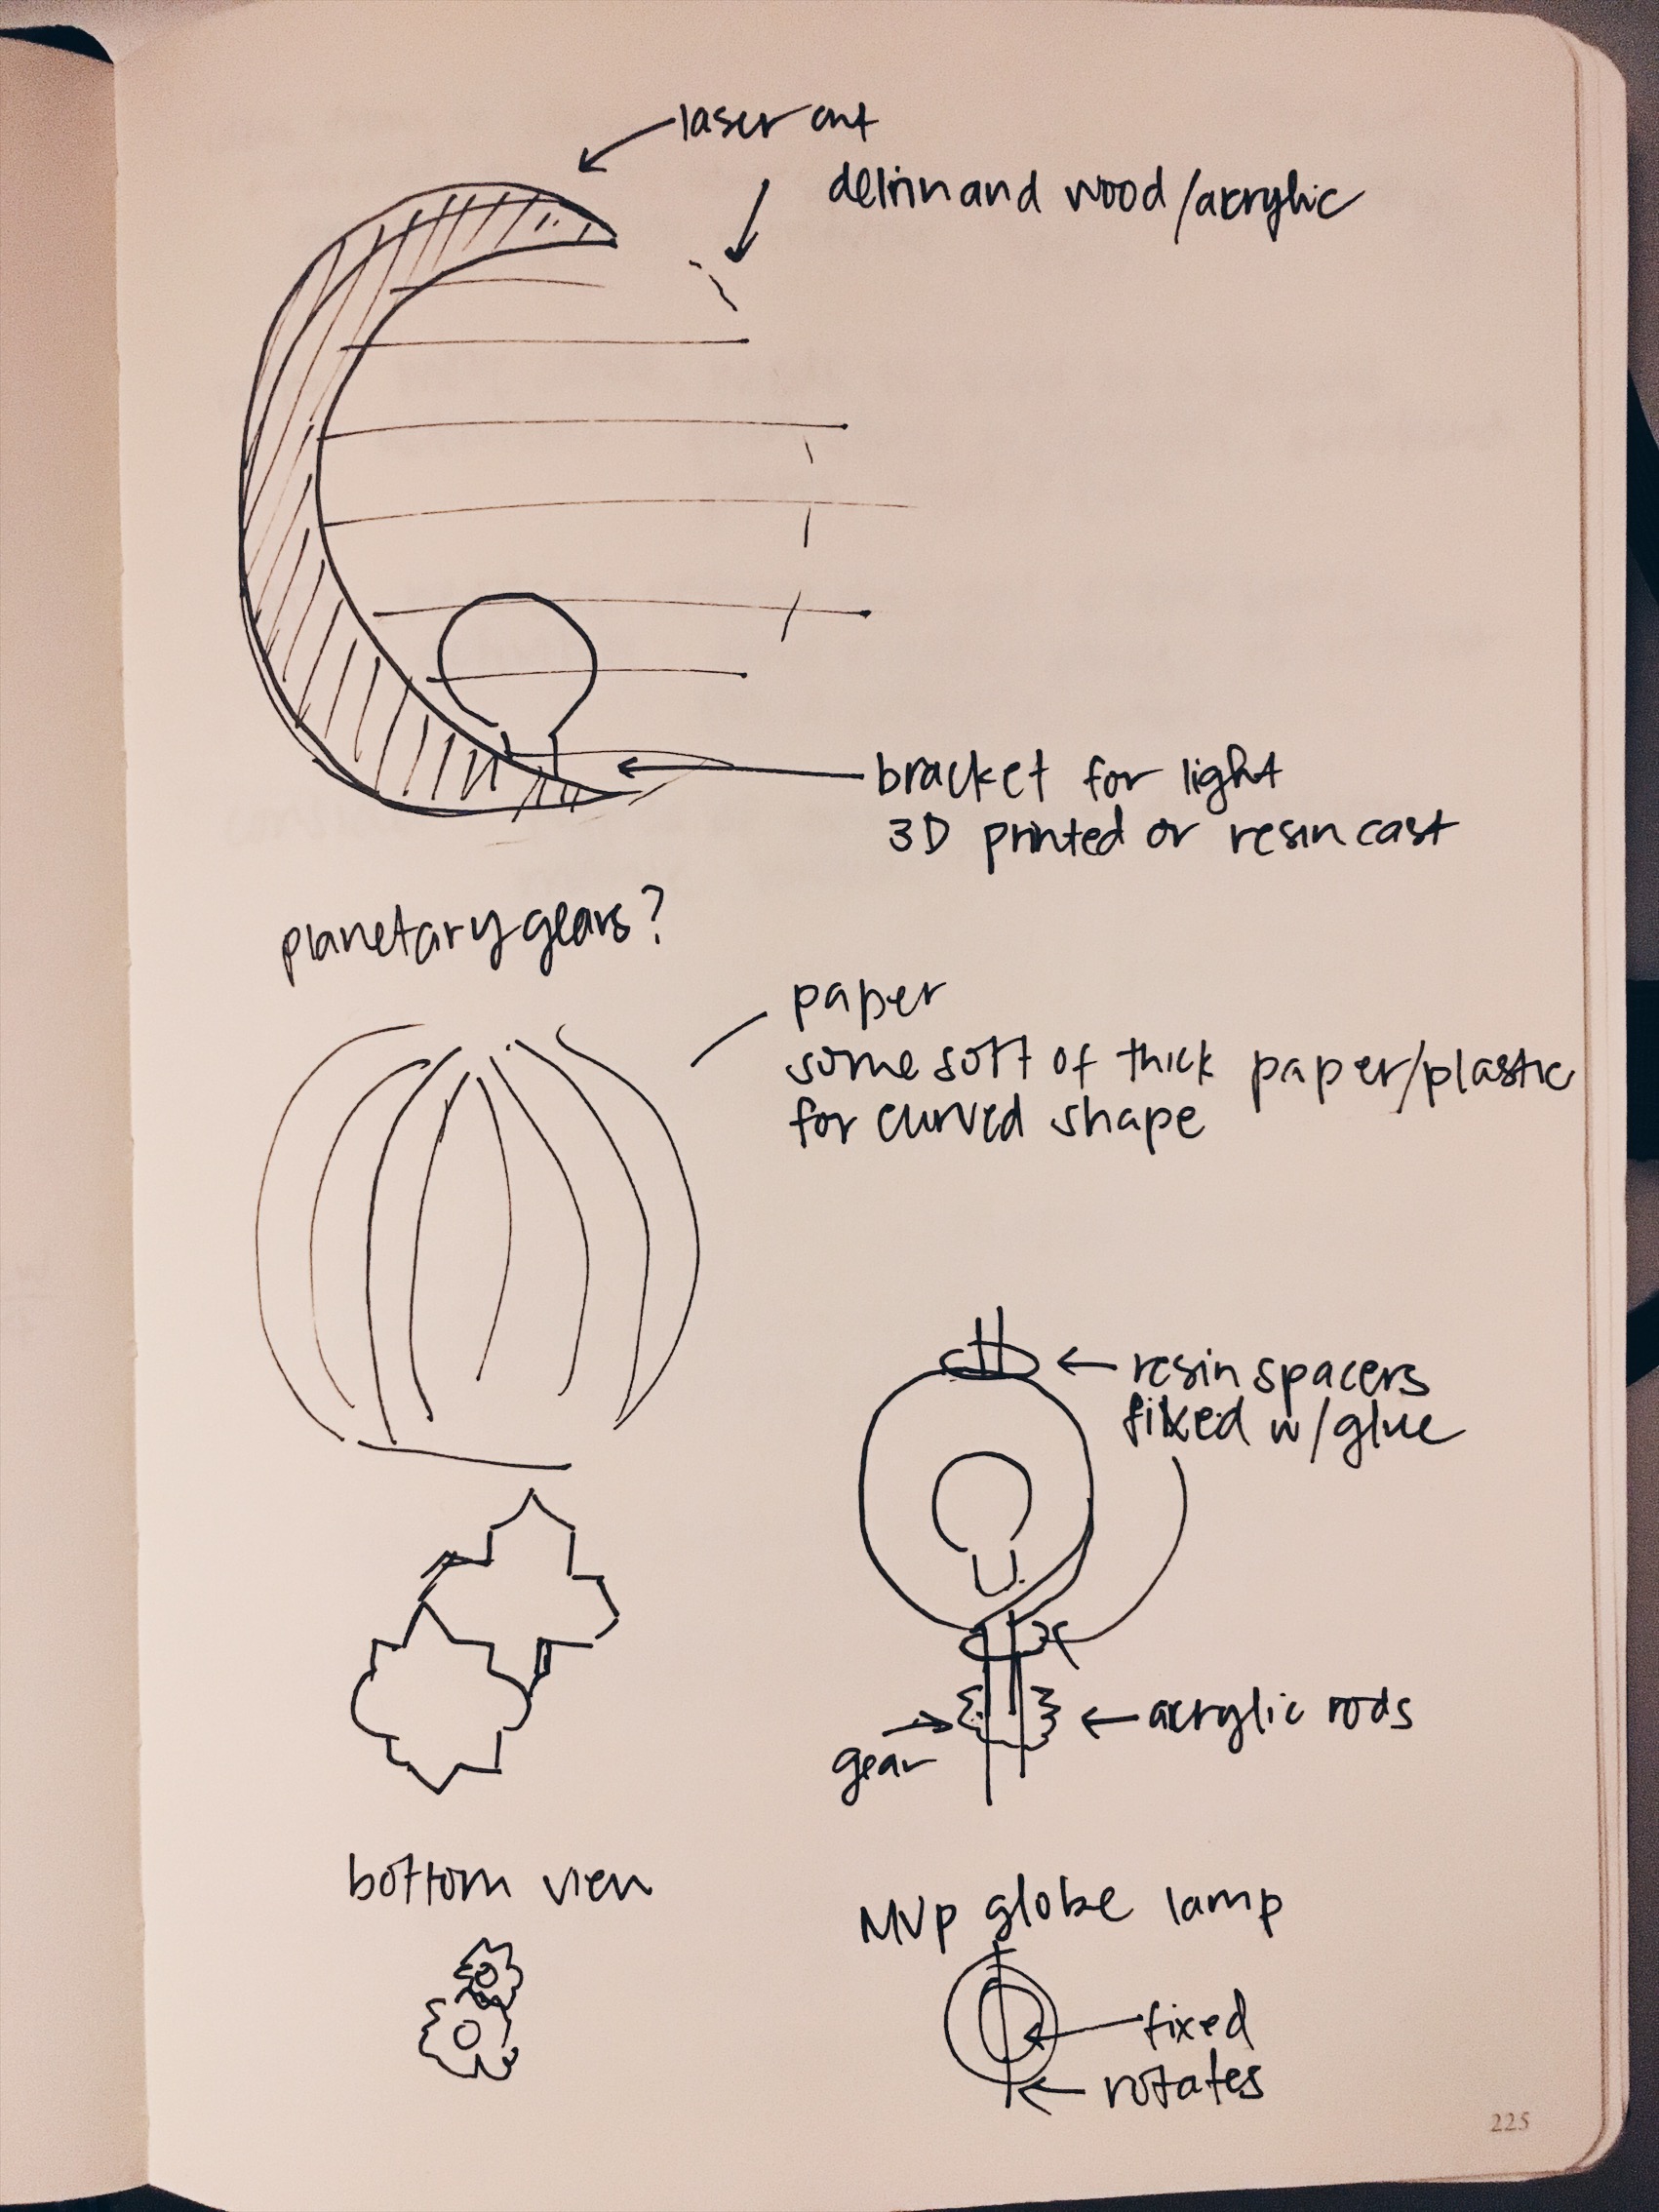 laser cut
delrin and wood/acrylic
bracket for light
3D printed or resin cast
planetary gears?
paper
some sort of thick paper/plastic
for curved shape
resin spacers
fixed w/glue
acrylic rods
gear
bottom view
MVP globe lamp
fixed
rotates
225